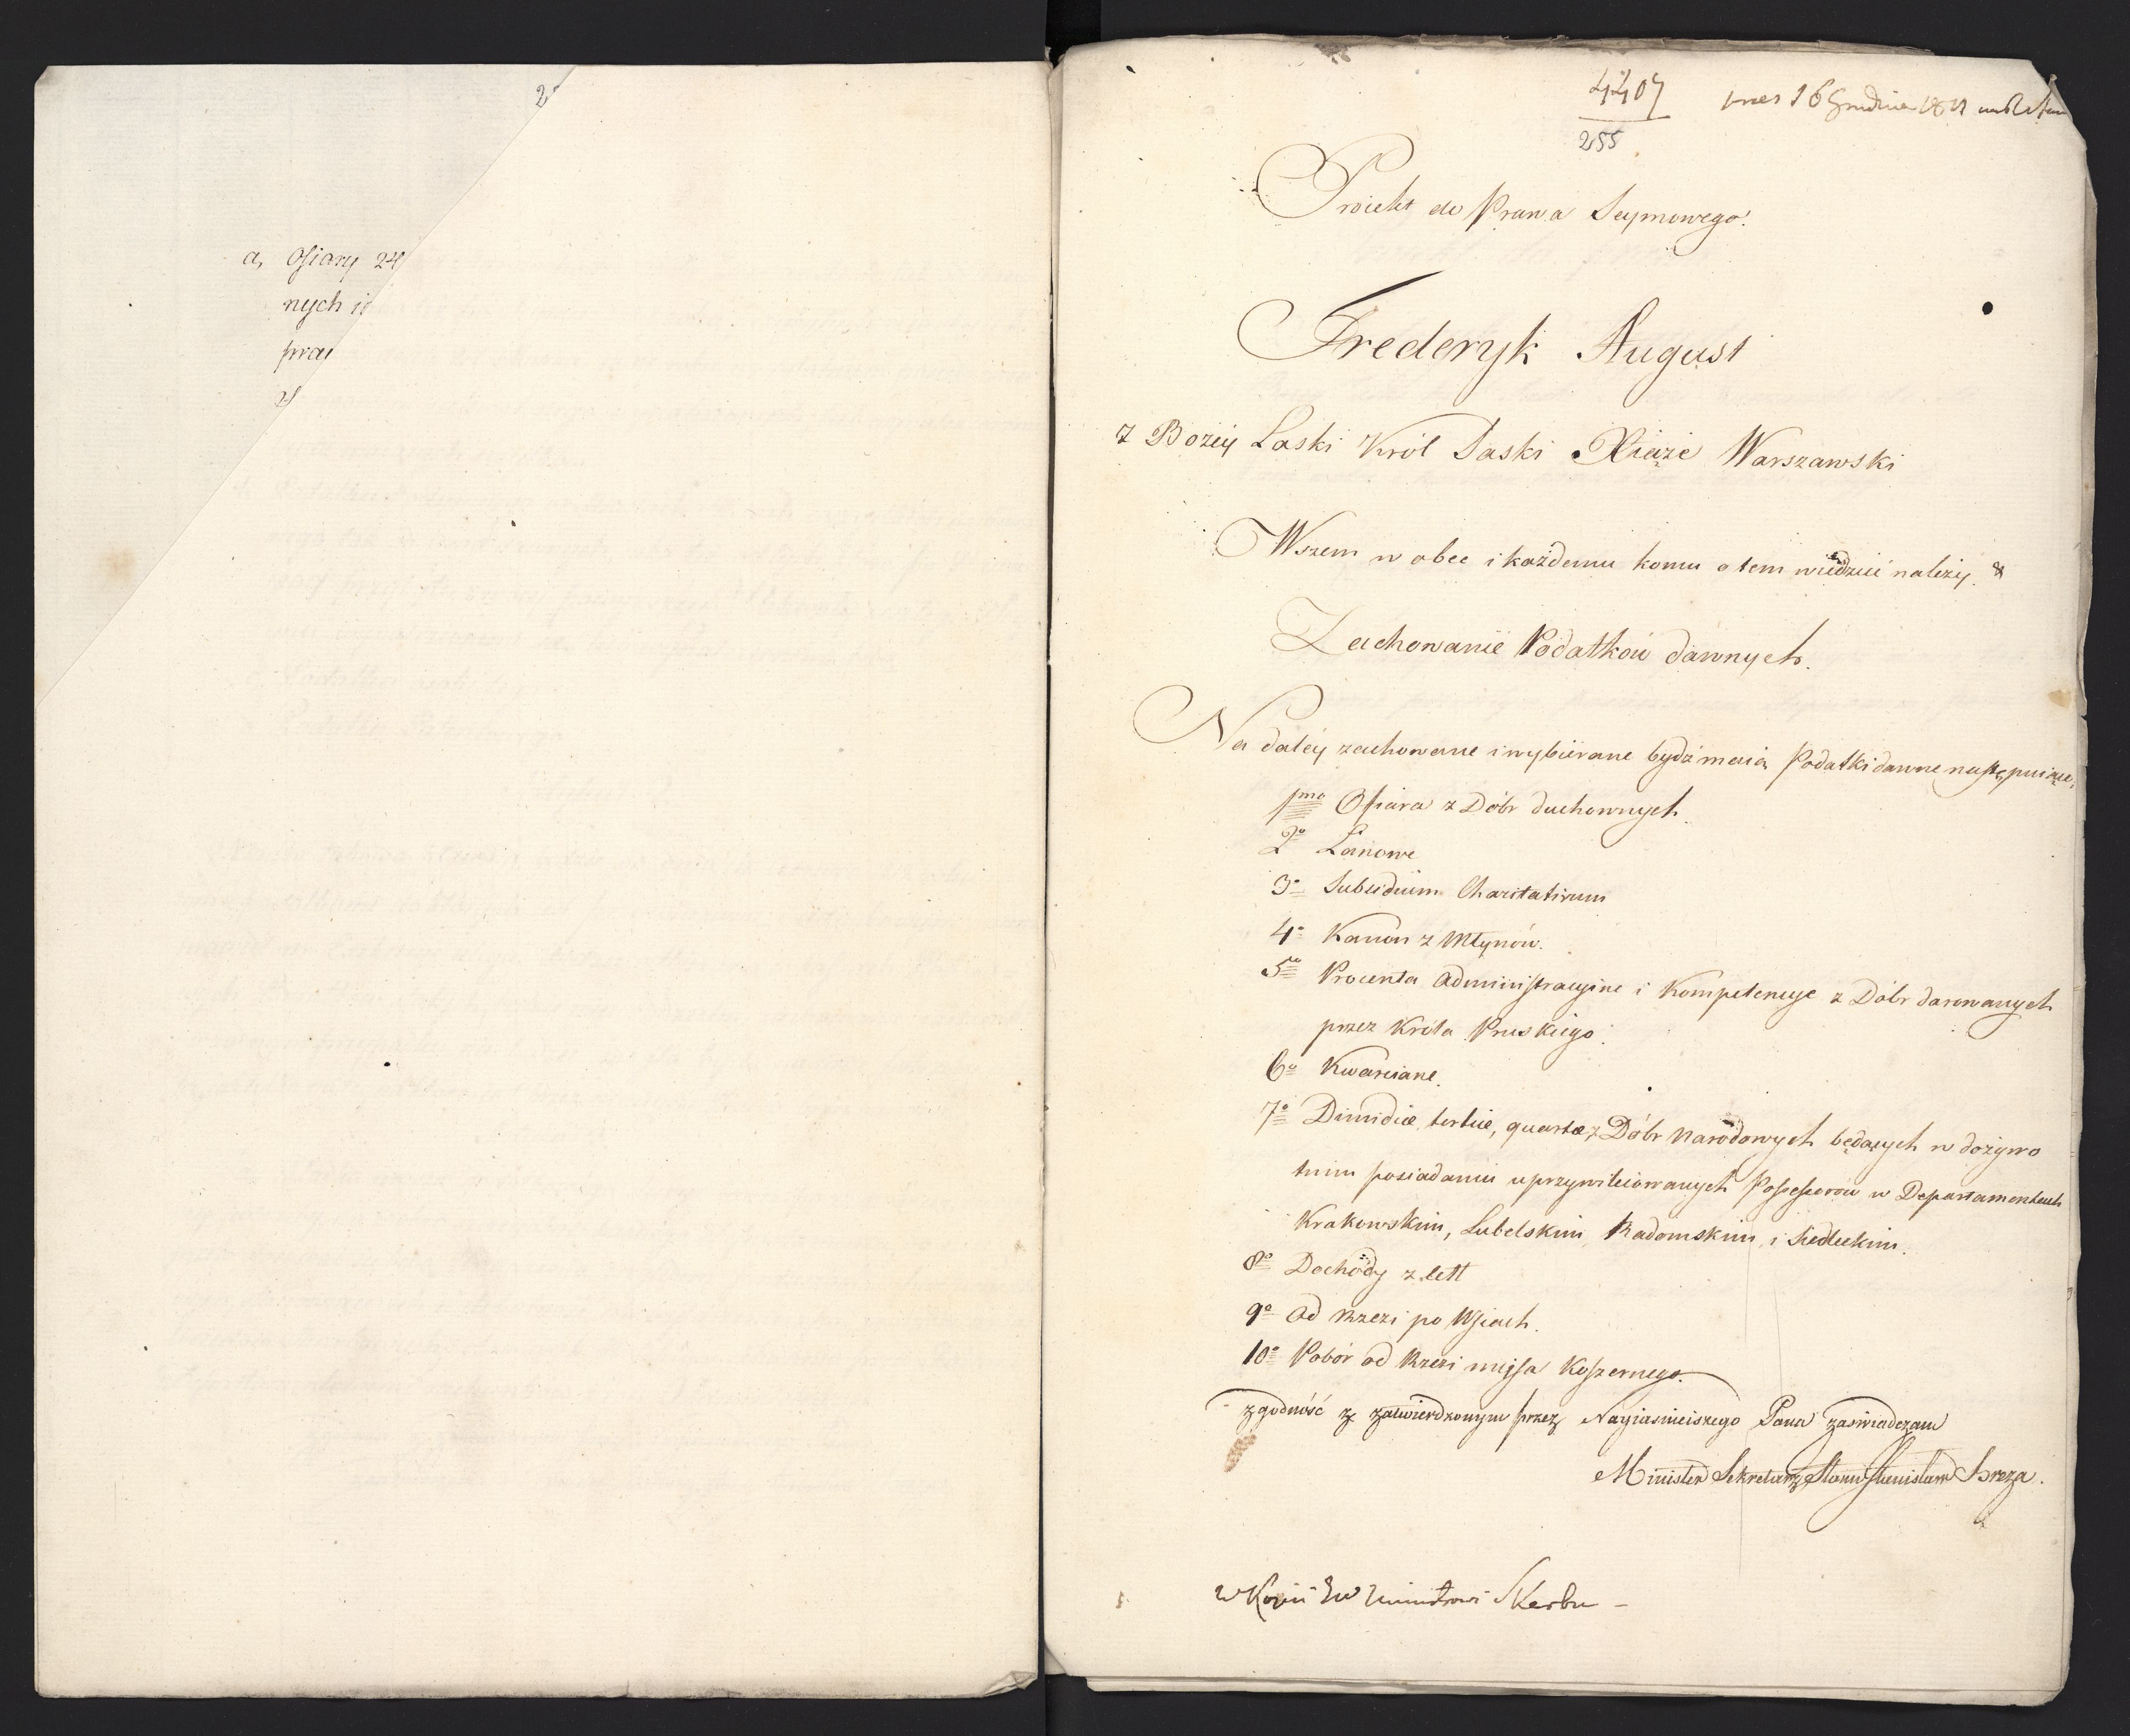 2
a, Ofiary 24
nych i
pra
4407
255
16 Grudnia 1811
Proiekt do Prawa Seymowego.
Frederyk August
z Bożéy Łaski Król Saski Xiąże Warszawski
Wszem w obec i każdemu komu o tem wiedzieć należy. &
Zachowanie Podatków dawnych.
Na daléy zachowane i wybiérane bydź maią Podatki dawne następuiące,
1mo Ofiara z Dóbr duchownych.
2o Łanowe
3o Subsidium Charitativum
4o Kanon z Młynów.
5to Procenta administracyine i Kompetencye z Dóbr darowanych
przez Króla Pruskiego.
6o Kwarciane.
7o Dimidiæ, tertiæ, quartæ, z Dóbr Narodowych będących w dożywo
tnim posiadaniu uprzywileiowanych Possessorów w Departamentach
Krakowskim, Lubelskim Radomskim, i Siedleckim.
8o Dochody z cell
9o od Rzezi po Wsiach.
10o Pobór od Rzezi mięsa Koszernego.
zgodność z zatwierdzonym przez Nayiaśnieiszego Pana zaświadczam
Minister Sekretarz Stanu Stanisław Breza.
w Kopii Ministrowi Skarbu -